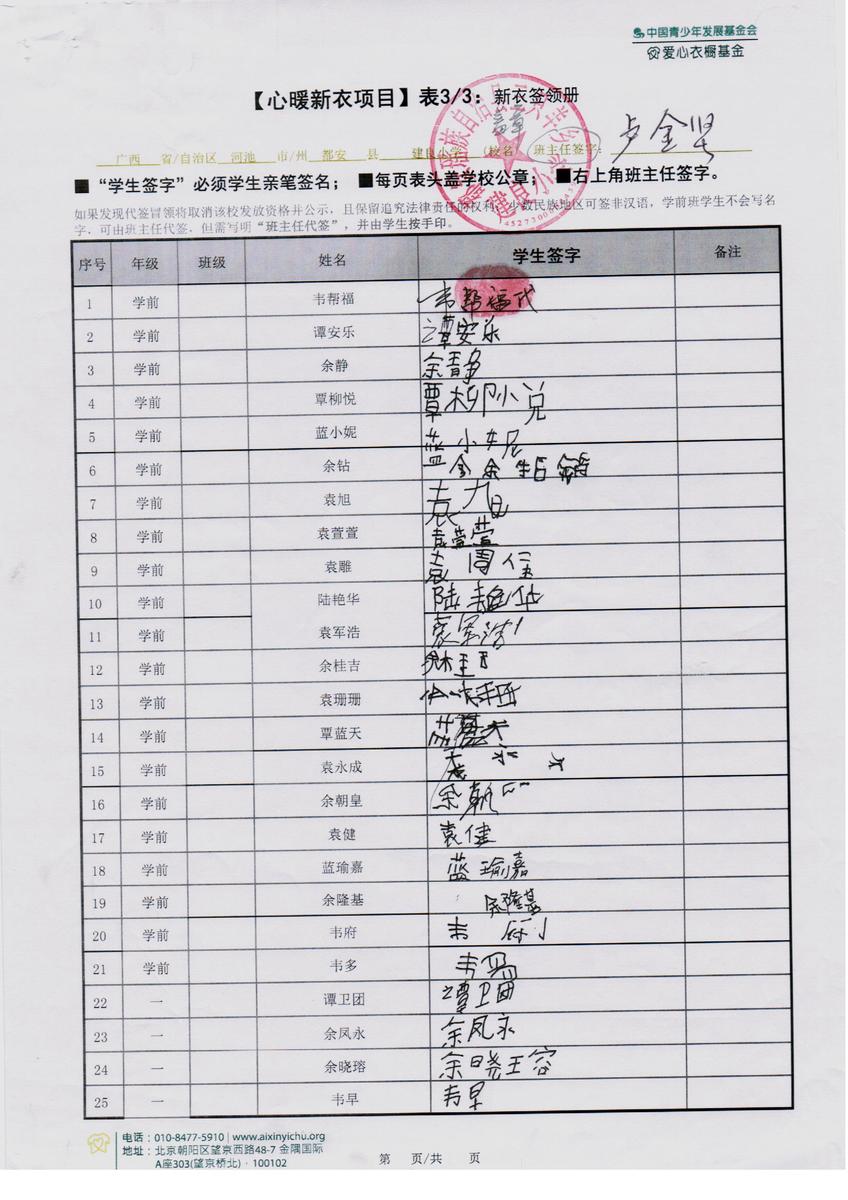 中国青少年发展基金会
爱心衣橱基金
【心暖新衣项目】表3/3：新衣签领册
盖章
广西 省/自治区 河池 市/州 都安 县 建良小学 （校名） 班主任签字：
■“学生签字”必须学生亲笔签名； ■每页表头盖学校公章； ■右上角班主任签字。
如果发现代签冒领将取消该校发放资格并公示，且保留追究法律责任的权利，少数民族地区可签非汉语，学前班学生不会写名
字，可由班主任代签，但需写明“班主任代签”，并由学生按手印。
序号 年级 班级 姓名 学生签字 备注
1 学前 韦帮福 韦帮福代
2 学前 谭安乐 谭安乐
3 学前 余静 余静
4 学前 覃柳悦 覃柳
5 学前 蓝小妮 蓝小妮
6 学前 余钻
7 学前 袁旭 袁旭
8 学前 袁萱萱 袁萱萱
9 学前 袁雕 袁
10 学前 陆艳华 陆艳华
11 学前 袁军浩 袁军浩
12 学前 余桂吉
13 学前 袁珊珊
14 学前 覃蓝天
15 学前 袁永成
16 学前 余朝皇 余朝
17 学前 袁健 袁健
18 学前 蓝瑜嘉 蓝瑜嘉
19 学前 余隆基 余隆基
20 学前 韦府 韦府
21 学前 韦多 韦
22 一 谭卫团 谭卫团
23 一 余凤永 余凤永
24 一 余晓瑢 余晓瑢
25 一 韦早 韦早
电话：010-8477-5910 | www.aixinyichu.org
地址：北京朝阳区望京西路48-7 金隅国际
A座303(望京桥北)·100102
第 页/共 页